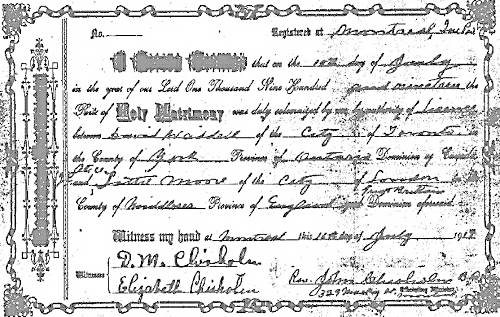 No. Registered at Montreal, Que
that on the 10th day of July
in the year of our Lord One Thousand Nine Hundred and nineteen the
Rite of Holy Matrimony was duly solemnized by me by authority of License
between David Waddell of the City of Toronto in
the County of York Province of Ontario Dominion of Canada
and Moore of the City of London in the
County of Middlesex Province of England Dominion aforesaid.
Witness my hand at Montreal this 10th day of July 19
Witnesses D. M. Chisholm
Elizabeth Chisholm
Rev. John Chisholm B.A.
323